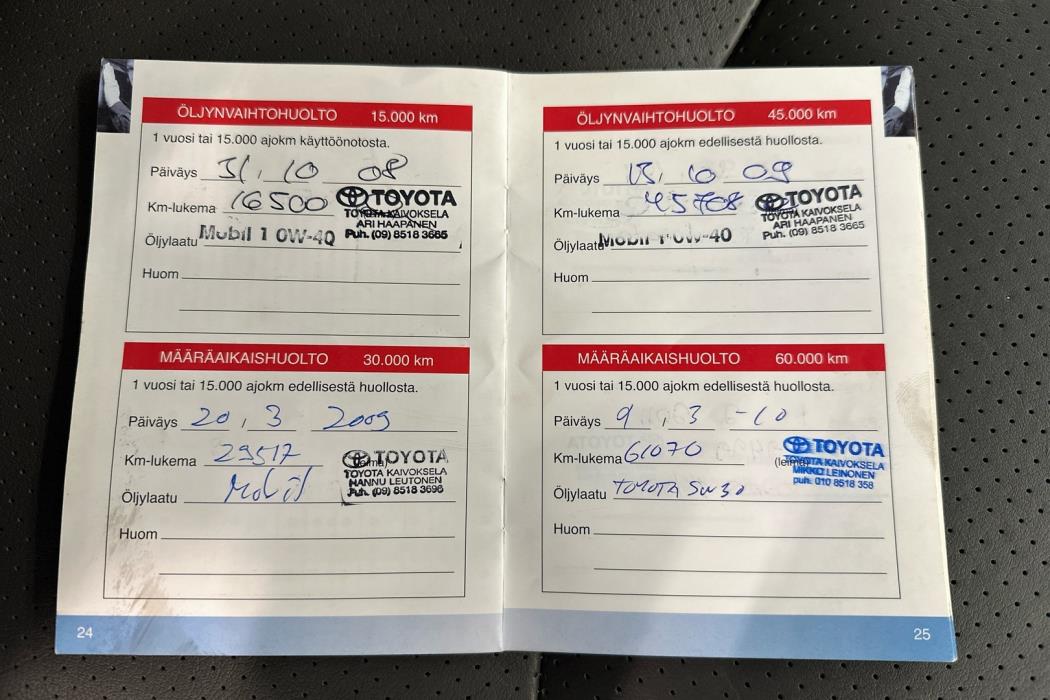 ÖLJYNVAIHTOHUOLTO 15.000 km
1 vuosi tai 15.000 ajokm käyttöönotosta.
Päiväys 31. 10 08
Km-lukema 16500
TOYOTA
TOYOTA KAIVOKSELA
ARI HAAPANEN
Puh. (09) 8518 3665
Öljylaatu Mobil 1 0W-40
Huom
MÄÄRÄAIKAISHUOLTO 30.000 km
1 vuosi tai 15.000 ajokm edellisestä huollosta.
Päiväys 20 , 3 2009
Km-lukema 29517
TOYOTA
TOYOTA KAIVOKSELA
HANNU LEUTONEN
Puh. (09) 8518 3696
Öljylaatu Mobil
Huom
24
ÖLJYNVAIHTOHUOLTO 45.000 km
1 vuosi tai 15.000 ajokm edellisestä huollosta.
Päiväys 13. 10 09
Km-lukema 45708
TOYOTA
TOYOTA KAIVOKSELA
ARI HAAPANEN
Puh. (09) 8518 3665
Öljylaatu Mobil 1 0W-40
Huom
MÄÄRÄAIKAISHUOLTO 60.000 km
1 vuosi tai 15.000 ajokm edellisestä huollosta.
Päiväys 9 , 3 -10
Km-lukema 61070
(leima)
TOYOTA
TOYOTA KAIVOKSELA
MIKKO LEINONEN
puh. 010 8518 358
Öljylaatu TOYOTA 5W30
Huom
25